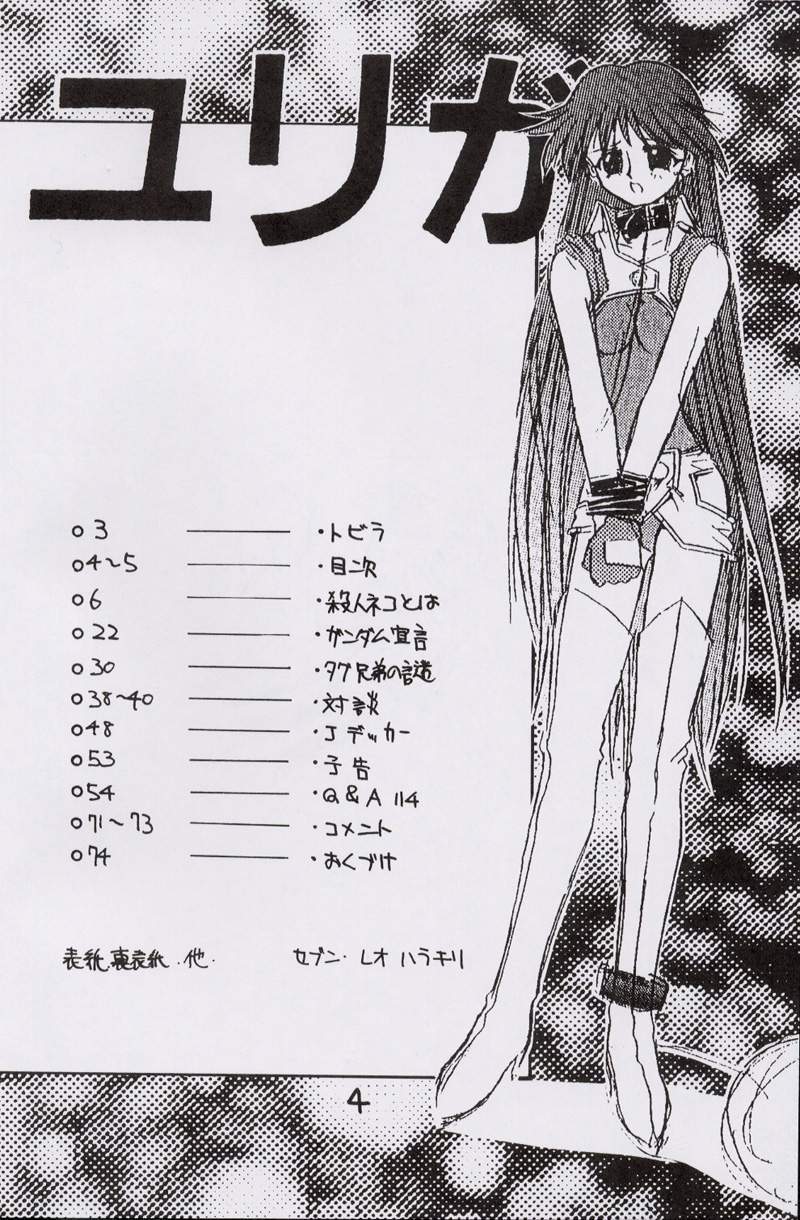 ユリガ
03 ・トビラ
04~5 ・目次
06 ・殺人ネコとは
022 ・ガンダム宣言
030 ・タグ兄弟の謎
038~40 ・対談
048 ・Jデッカー
053 ・予告
054 ・Q&A 114
071~73 ・コメント
074 ・おくづけ
表紙、裏表紙・他・ セブン・レオ ハラキリ
4